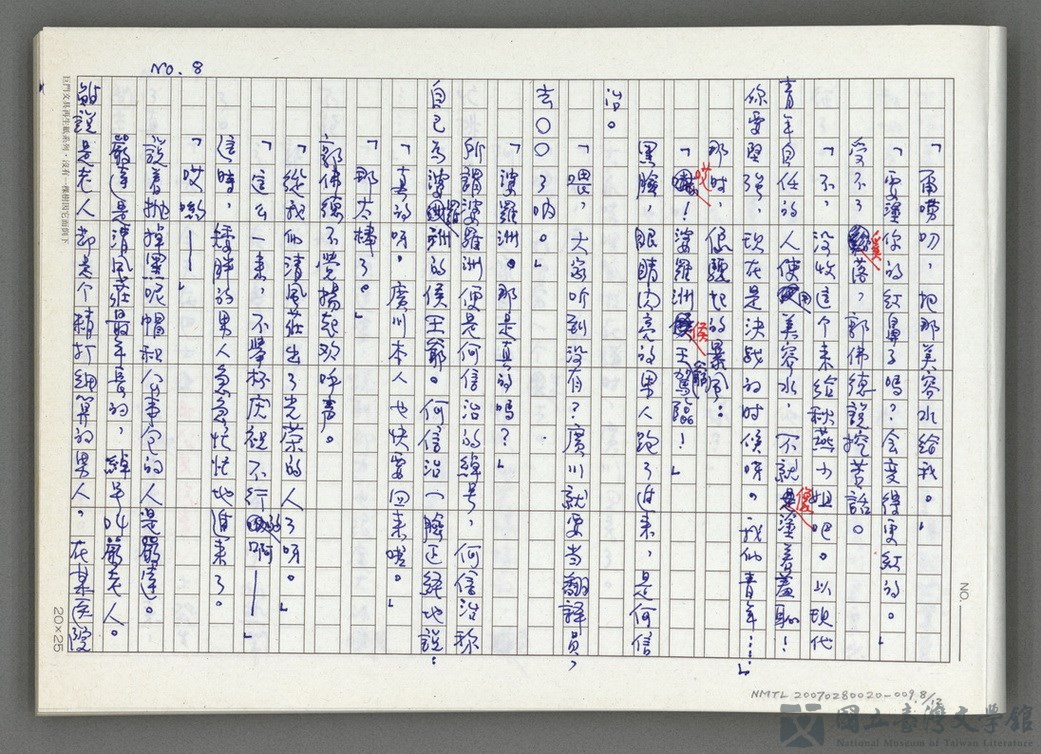 NO. 8
NO.
「再嘮叨，把那美容水給我。」
「要塗你的紅鼻子嗎？會變得更紅的。」
受不了奚落，郭佛德說挖苦話。
「不，沒收這个来給秋燕小姐吧。以現代
青年自任的人使用美容水，不就像塗着羞恥！
你要堅強，現在是決戰的时候呀。我们青年……」
那时，像颳起的暴風：
「哎！婆羅洲侯王爺駕臨！」
黑臉，眼睛肉亮的男人跑了進来，是何信
治。
「喂，大家听到沒有？廣川就要当翻譯員，
去〇〇了吶。」
「婆羅洲。那是真的嗎？」
所謂婆羅洲便是何信治的綽号，何信治称
自己為婆羅洲的侯王爺。何信治一臉正経地說：
「真的呀。廣川本人也快要回来喽。」
「那太棒了。」
郭佛德不覺揚起欢呼声。
「從我们清風莊出了光荣的人了呀。」
「這么一来，不舉杯庆祝不行的啊——」
這時，矮胖的男人急急忙忙地進来了。
「哎喲——」
說着抛掉黑呢帽和公事包的人是嚴達。
嚴達是清風莊最年長的，綽号叫嚴老人。
雖說是老人却是个精打細算的男人，在某医院
巨門文具再生紙系列・沒有一棵樹因它而倒下
20×25
NMTL 20070280020-009 8/12
國立臺灣文學館
National Museum of Taiwan Literature